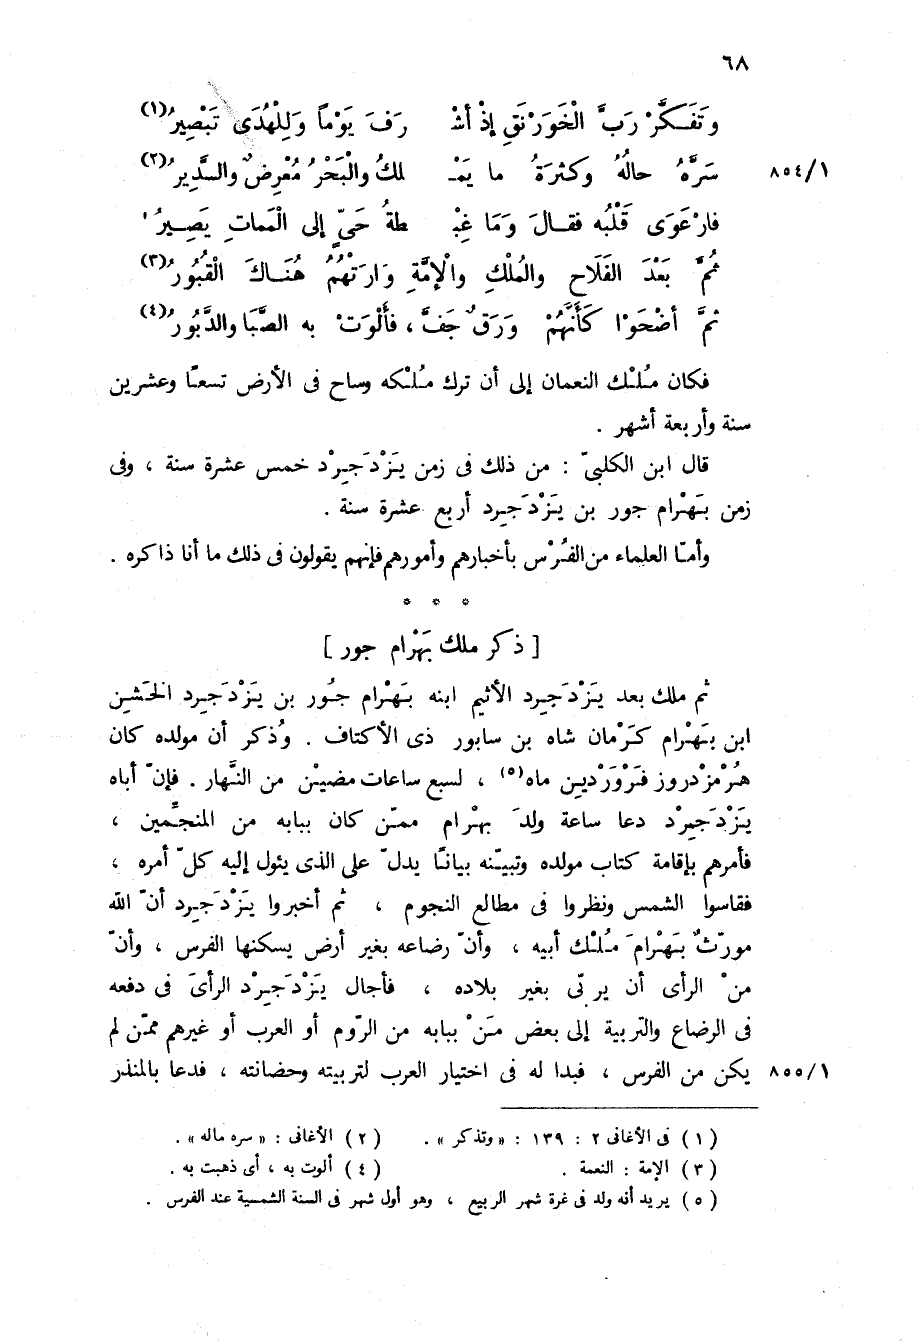 ٦٨
وتَفَكَّرْ رَبَّ الْخَوَرْنَقِ إِذْ أَشْـ رَفَ يَوْماً وَلِلْهُدَى تَبْصِيرُ(١)
٨٥٤/١ سَرَّهُ حالُهُ وكثرَةُ ما يَمْـ لكُ والْبَحْرُ مُعْرِضٌ والسَّدِيرُ(٢)
فارْعَوَى قَلْبُه فقالَ وَمَا غِبْـ طةُ حَىّ إلى الْمَماتِ يَصِيرُ
ثُمَّ بَعْدَ الفَلَاحِ والمُلْكِ والْإِمَّةِ وَارَتْهُمُ هُنَاكَ الْقُبُورُ(٣)
ثمَّ أضْحَوْا كَأَنَّهُمْ وَرَقٌ جَفَّ ، فَأَلْوَتْ به الصَّبَا والدَّبُورُ(٤)
فكان مُلْك النعمان إلى أن ترك مُلْكه وساح فى الأرض تسعًا وعشرين
سنة وأربعة أشهر .
قال ابن الكلبىّ : من ذلك فى زمن يَزْدَجِرْد خمس عشرة سنة ، وفى
زمن بَهْرام جور بن يَزْدَجِرد أربع عشرة سنة .
وأمّا العلماء من الفُرْس بأخبارهم وأمورهم فإنهم يقولون فى ذلك ما أنا ذاكره .
* * *
[ ذكر ملك بَهْرام جور ]
ثم ملك بعد يَزْدَجِرد الأثيم ابنه بَهْرام جُور بن يَزْدَجِرد الخَشِن
ابن بَهْرام كَرْمان شاه بن سابور ذى الأكتاف . وذُكر أن مولده كان
هُرْمزْدروز فَرْوَرْدين ماه(٥) ، لسبع ساعات مضيْن من النَّهار . فإنّ أباه
يَزْدَجِرْد دعا ساعة ولدَ بهْرام ممّن كان ببابه من المنجِّمين ،
فأمرهم بإقامة كتاب مولده وتبيّنه بيانًا يدلّ على الذى يئول إليه كلّ أمره ،
فقاسوا الشمس ونظروا فى مطالع النجوم ، ثم أخبروا يَزْدَجِرد أنّ الله
مورّثٌ بَهْرامَ مُلْك أبيه ، وأنّ رضاعه بغير أرض يسكنها الفرس ، وأنّ
منْ الرأى أن يربّى بغير بلاده ، فأجال يَزْدَجِرْد الرأىَ فى دفعه
فى الرضاع والتربية إلى بعض مَنْ ببابه من الرّوم أو العرب أو غيرهم ممّن لم
٨٥٥/١ يكن من الفرس ، فبدا له فى اختيار العرب لتربيته وحضانته ، فدعا بالمنذر
(١) فى الأغانى ٢ : ١٣٩ : « وتذكر » . (٢) الأغانى : « سره ماله » .
(٣) الإمة : النعمة . (٤) ألوت به ، أى ذهبت به .
(٥) يريد أنه ولد فى غرة شهر الربيع ، وهو أول شهر فى السنة الشمسية عند الفرس .